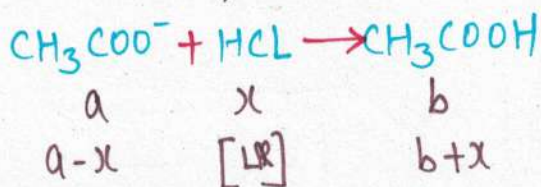 CH₃COO⁻ + HCL → CH₃COOH
a x b
a-x [LR] b+x